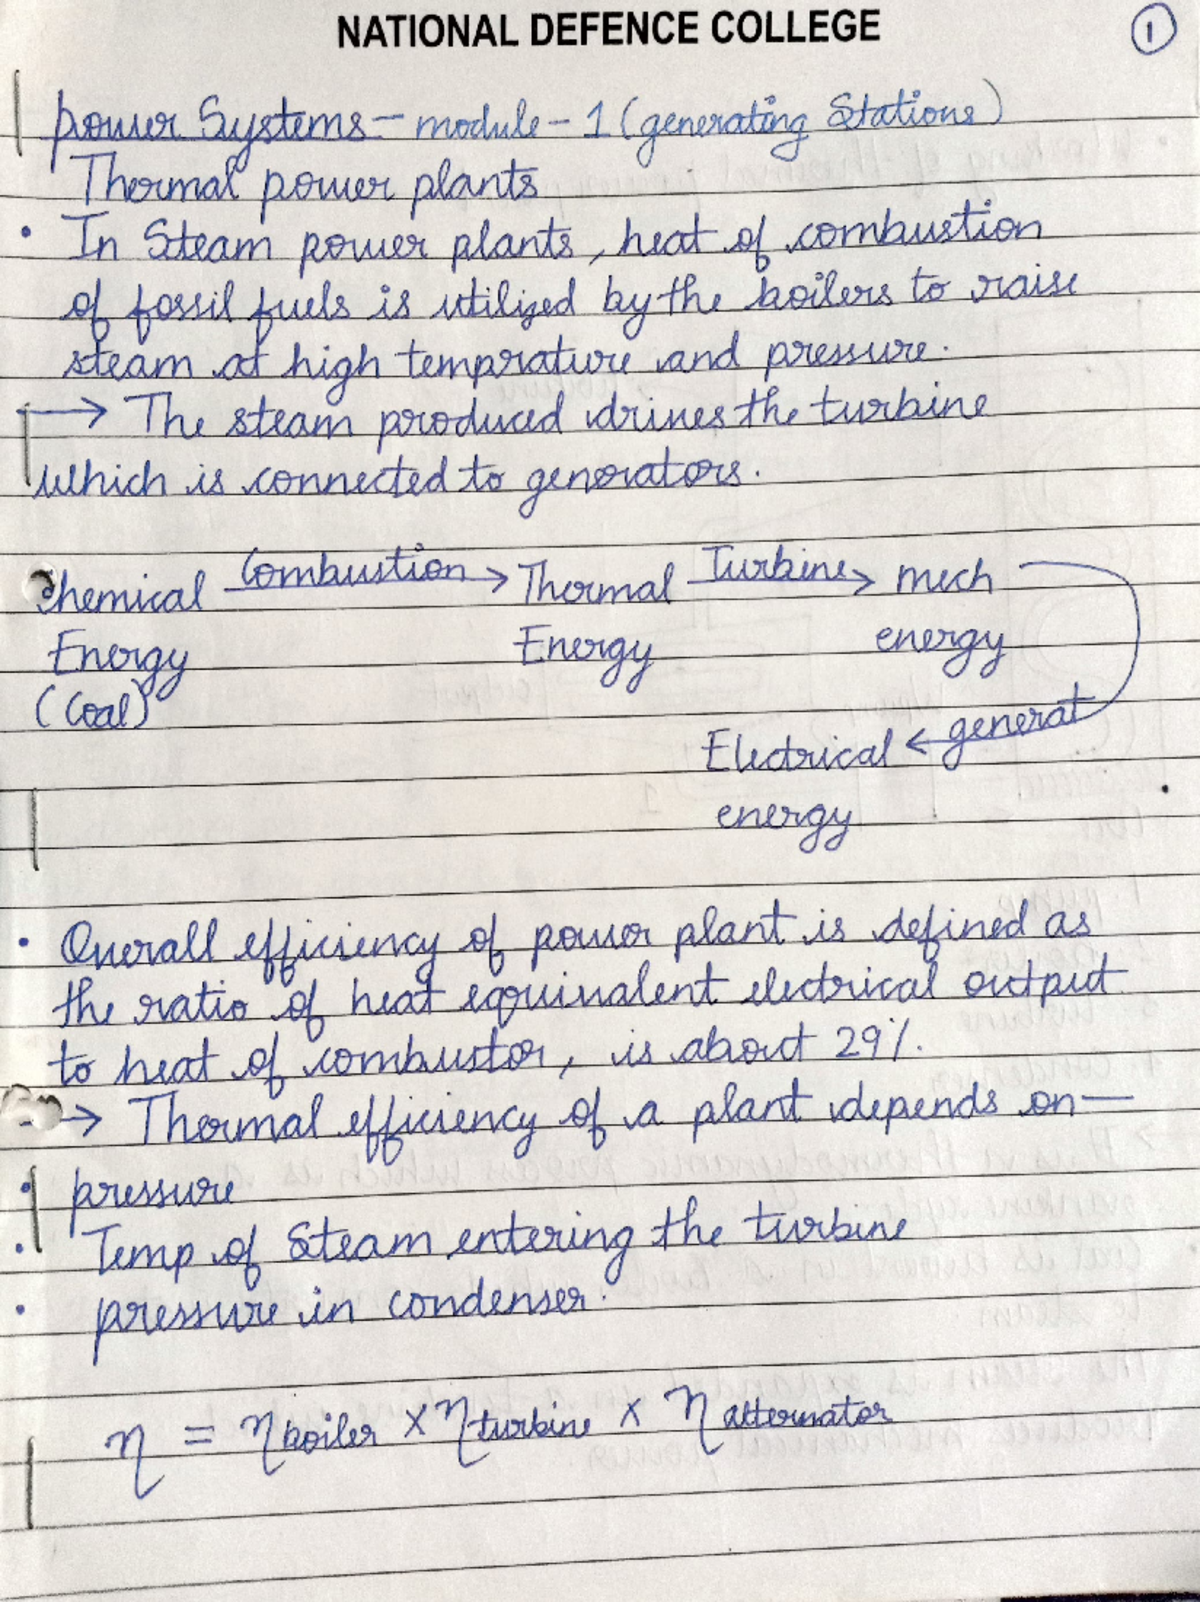 NATIONAL DEFENCE COLLEGE
1
power Systems - module - 1 (generating Stations)
Thermal power plants
• In Steam power plants, heat of combustion
of fossil fuels is utilized by the boilers to raise
steam at high temprature and pressure.
→ The steam produced drives the turbine
which is connected to generators.
Chemical Combustion → Thermal Turbine → mech
Energy Energy energy
(Coal)
Electrical ← generat
energy
• Overall efficiency of power plant is defined as
the ratio of heat equivalent electrical output
to heat of combustor, is about 29%.
→ Thermal efficiency of a plant depends on —
• pressure
• Temp of Steam entering the turbine
• pressure in condenser.
η = η boiler × η turbine × η alternator